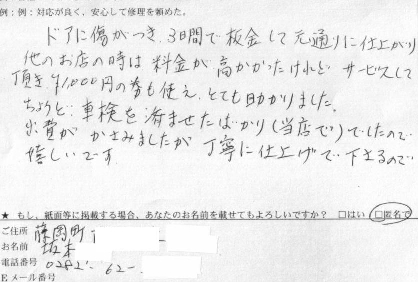 例：例：対応が良く、安心して修理を頼めた。
ドアに傷がつき、3日間で板金して元通りに仕上がり
他のお店の時は料金が高かかったけれど サービスして
頂き ¥1,000円の券も使え、とても助かりました。
ちょうど、車検を済ませたばかり(当店で)でしたので
出費がかさみましたが 丁寧に仕上げて下さるので
嬉しいです。
★ もし、紙面等に掲載する場合、あなたのお名前を載せてもよろしいですか？ □はい □匿名で
ご住所 藤岡町
お名前 坂本
電話番号 0282-62-
Eメール番号